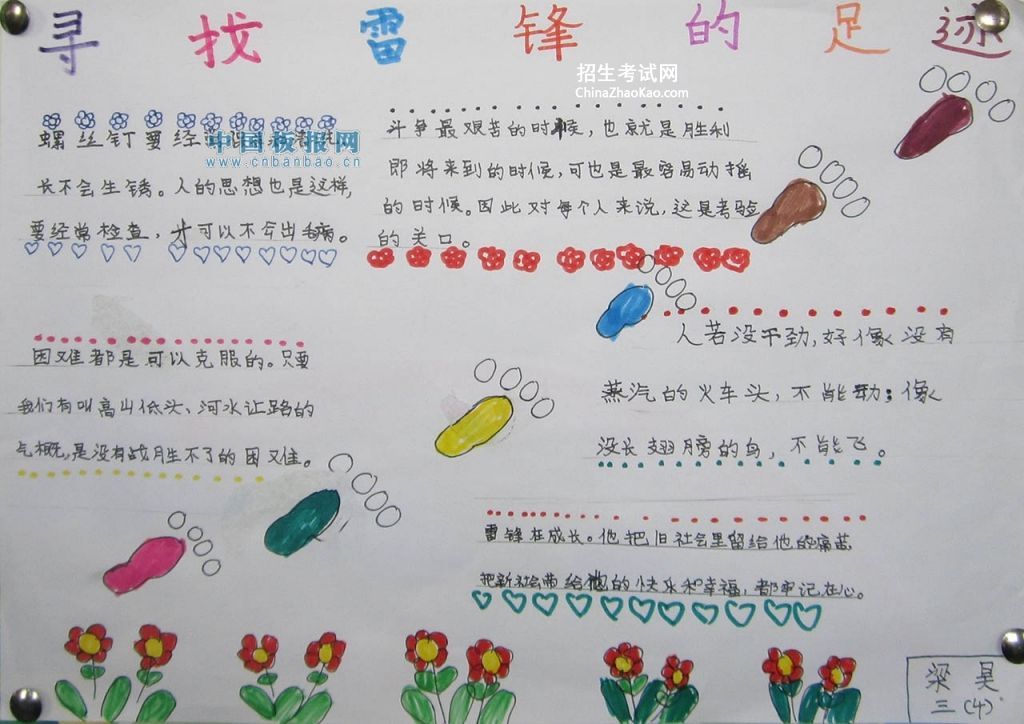 寻找雷锋的足迹
招生考试网
ChinaZhaoKao.com
螺丝钉要经
中国板报网
www.cnbanbao.cn
长不会生锈。人的思想也是这样,
要经常检查,才可以不会出毛病。
斗争最艰苦的时候,也就是胜利
即将来到的时候,可也是最容易动摇
的时候。因此对每个人来说,这是考验
的关口。
人若没干劲,好像没有
蒸汽的火车头,不能动;像
没长翅膀的鸟,不能飞。
困难都是可以克服的。只要
我们有叫高山低头、河水让路的
气概,是没有战胜不了的困难。
雷锋在成长。他把旧社会里留给他的痛苦
把新社会带给他的快乐和幸福,都牢记在心。
梁昊
三(4)